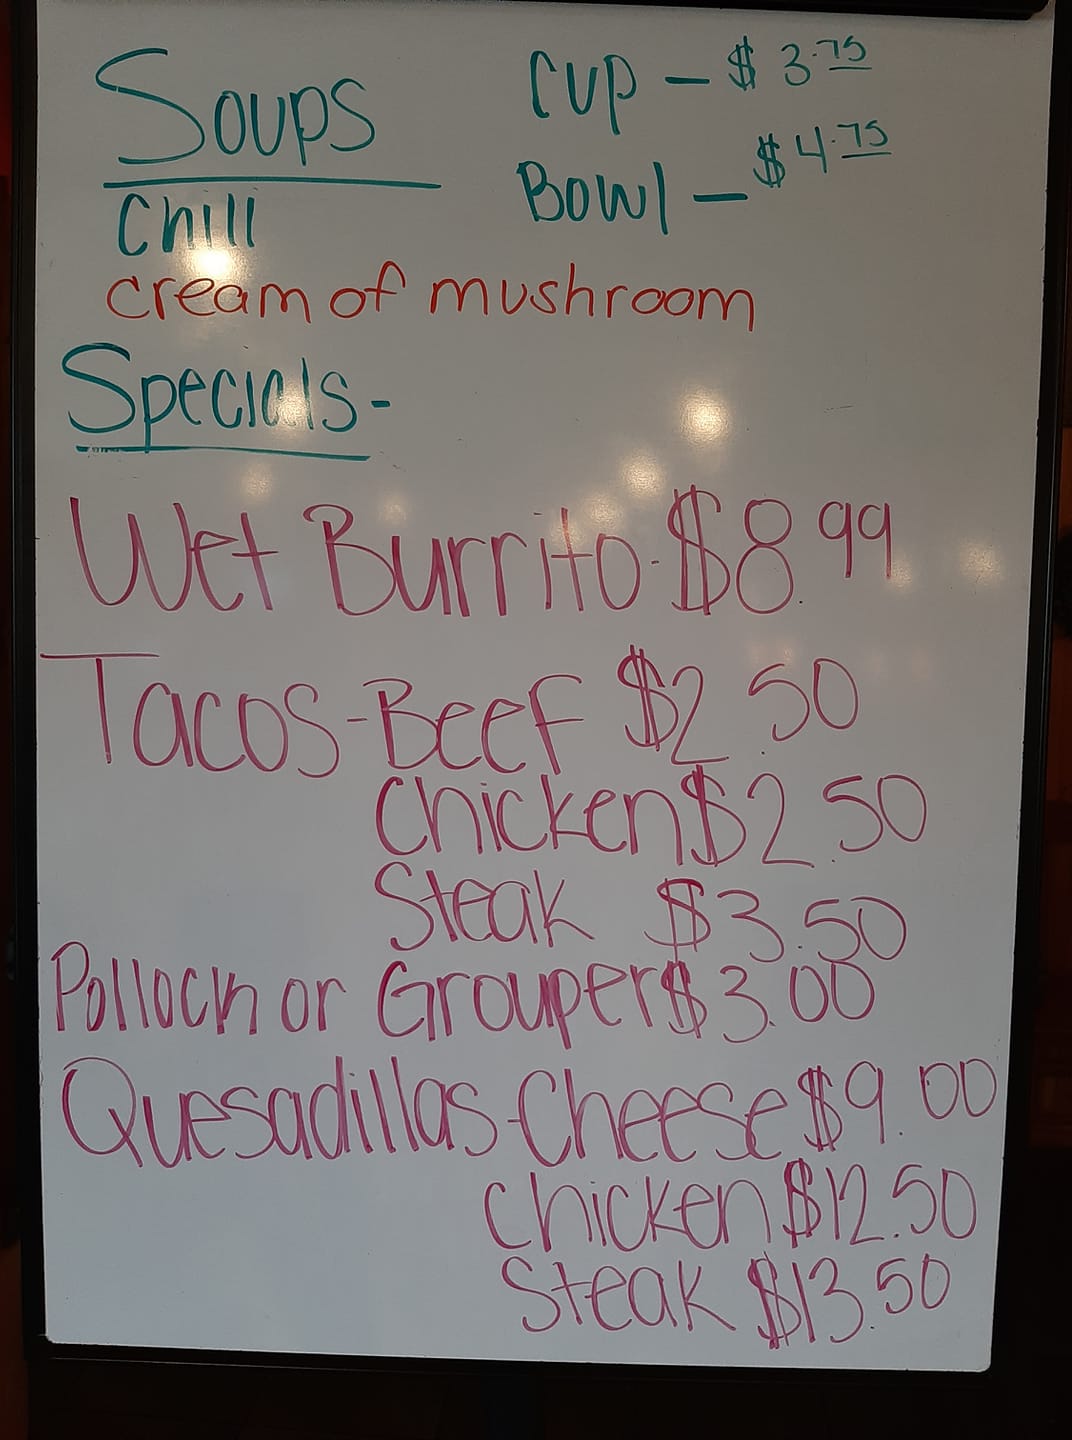 Soups
Cup - $3.75
Bowl - $4.75
Chili
cream of mushroom
Specials-
Wet Burrito-$8.99
Tacos-Beef $2.50
Chicken $2.50
Steak $3.50
Pollock or Grouper $3.00
Quesadillas-Cheese $9.00
Chicken $12.50
Steak $13.50